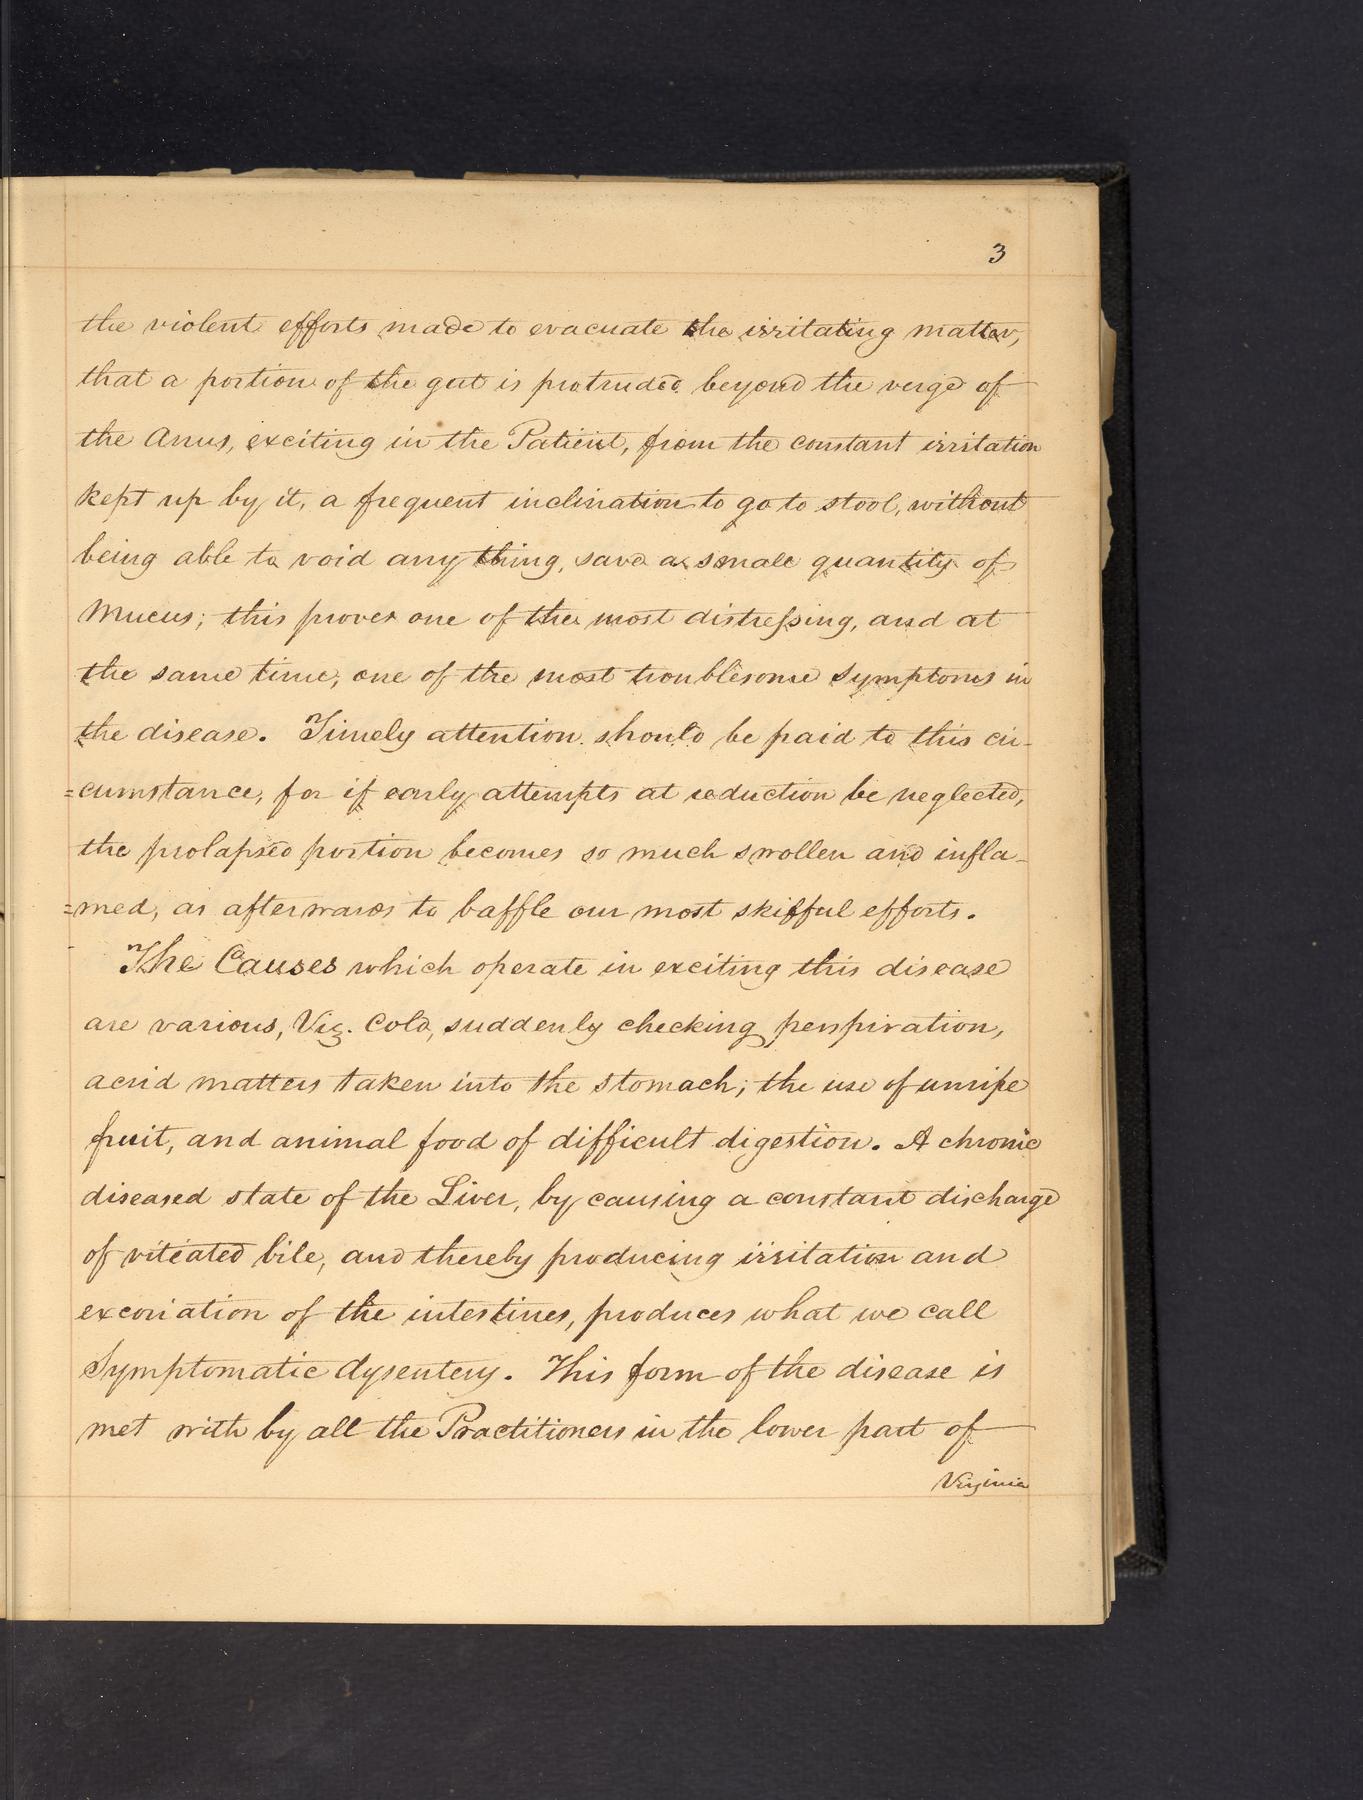 3
the violent efforts made to evacuate the irritating matter,
that a portion of the gut is protruded beyond the verge of
the Anus, exciting in the Patient, from the constant irritation
kept up by it, a frequent inclination to go to stool, without
being able to void any thing, save a small quantity of
Mucus; this proves one of the most distressing, and at
the same time, one of the most troublesome symptoms in
the disease. Timely attention should be paid to this cir-
=cumstance, for if early attempts at reduction be neglected,
the prolapsed portion becomes so much swollen and infla-
=med, as afterwards to baffle our most skilful efforts.
The Causes which operate in exciting this disease
are various, Viz. Cold, suddenly checking perspiration,
acrid matters taken into the stomach; the use of unripe
fruit, and animal food of difficult digestion. A chronic
diseased state of the Liver, by causing a constant discharge
of vitiated bile, and thereby producing irritation and
excoriation of the intestines, produces what we call
Symptomatic dysentery. This form of the disease is
met with by all the Practitioners in the lower part of
Virginia